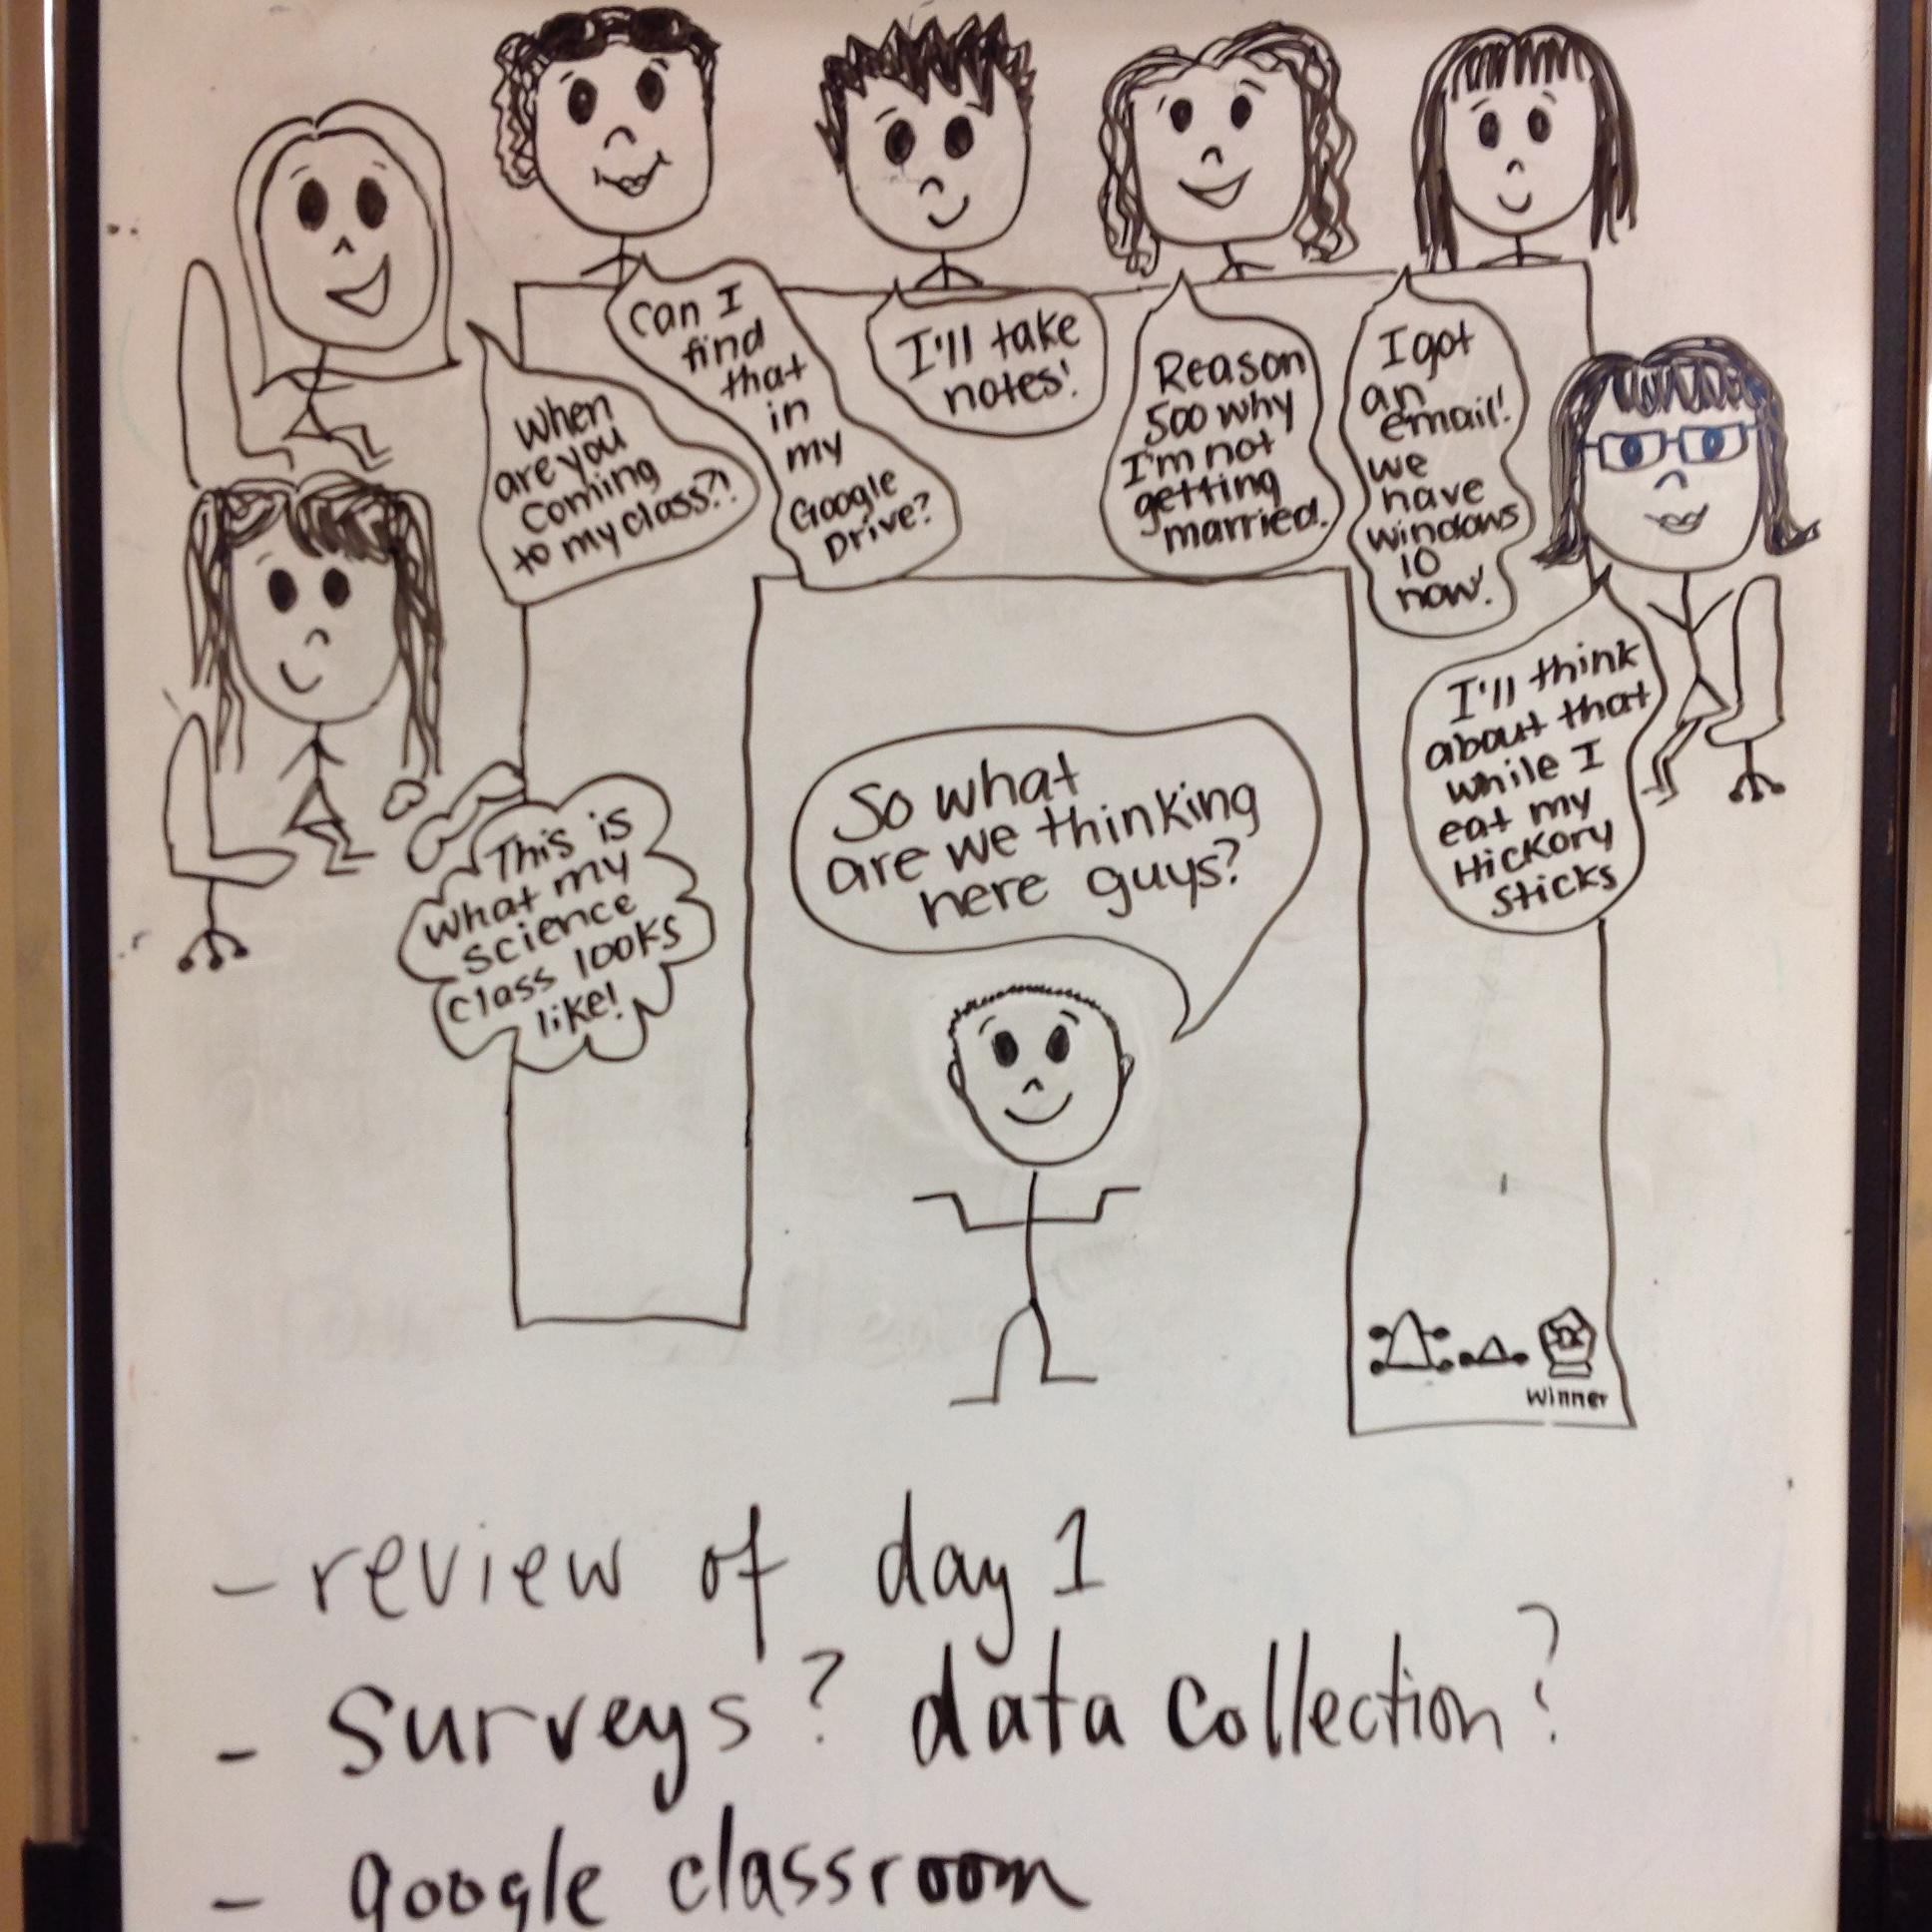 When
are you
coming
to my class?!
Can I
find
that
in
my
Google
Drive?
I'll take
notes!
Reason
500 why
I'm not
getting
married.
I got
an
email!
we
have
windows
10
now!
I'll think
about that
while I
eat my
Hickory
sticks
This is
what my
science
class looks
like!
So what
are we thinking
here guys?
winner
- review of day 1
- surveys? data collection?
- google classroom